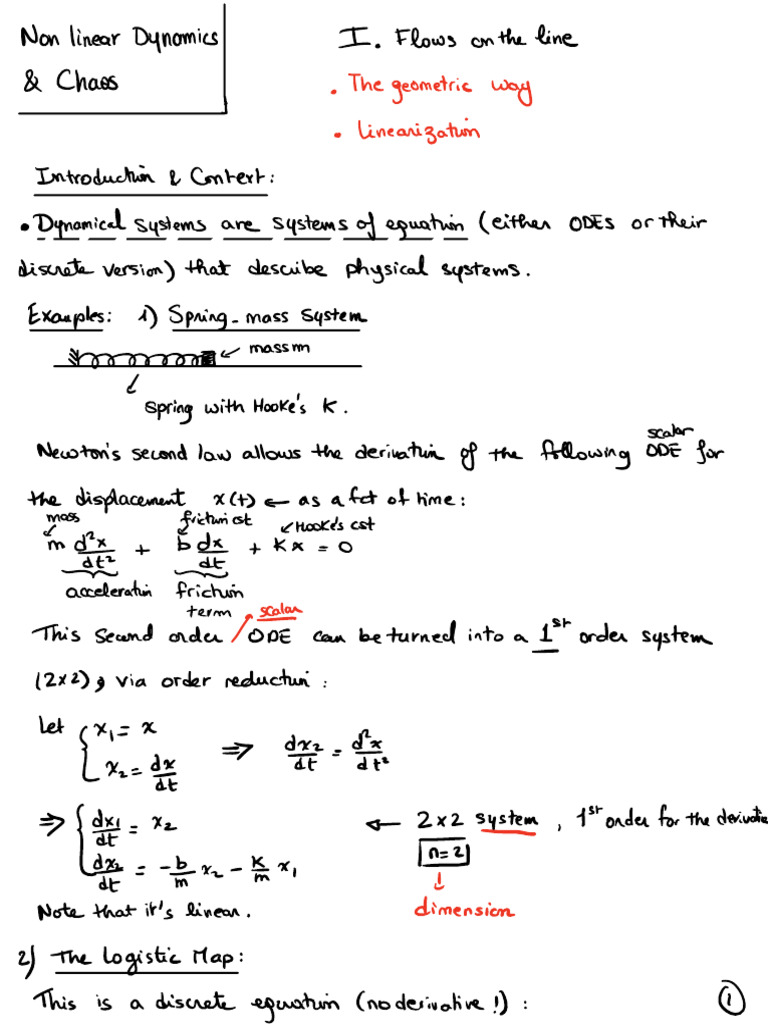 Non linear Dynamics
& Chaos
I. Flows on the line
• The geometric way
• Linearization
Introduction & Context:
• Dynamical systems are systems of equation (either ODEs or their
discrete version) that describe physical systems.
Examples: 1) Spring-mass system
← mass m
Spring with Hooke's K.
Newton's second law allows the derivation of the following scalar ODE for
the displacement x(t) ← as a fct of time:
mass friction cst Hooke's cst
m d²x/dt² + b dx/dt + K x = 0
acceleration friction
term
This second order scalar ODE can be turned into a 1st order system
(2×2), via order reduction:
Let { x₁ = x
x₂ = dx/dt ⇒ dx₂/dt = d²x/dt²
⇒ { dx₁/dt = x₂ ← 2×2 system, 1st order for the derivative
dx₂/dt = -b/m x₂ - K/m x₁ n=2
Note that it's linear. dimension
2) The Logistic Map:
This is a discrete equation (no derivative!): 1